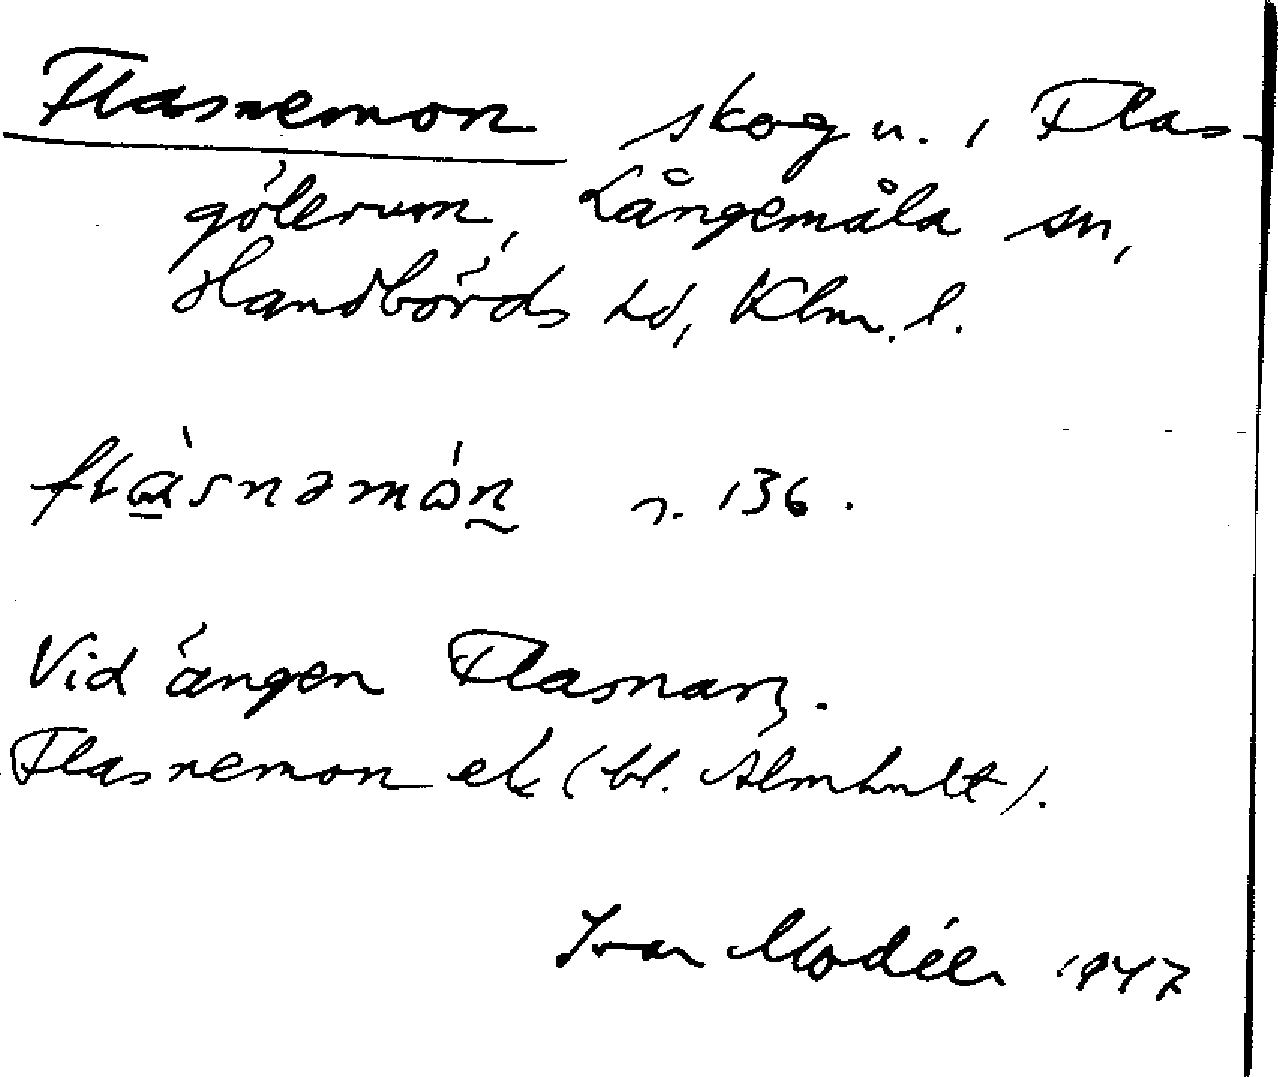 Flasnemon skog u. i Flas-
gölerum, Långemåla sn,
Handbörds hd, Klm. l.
flàsnəmón r. 136.
Vid ängen Flasnarn.
Flasnemon ek (bl. Älmhult).
Ivar Modéer 1947